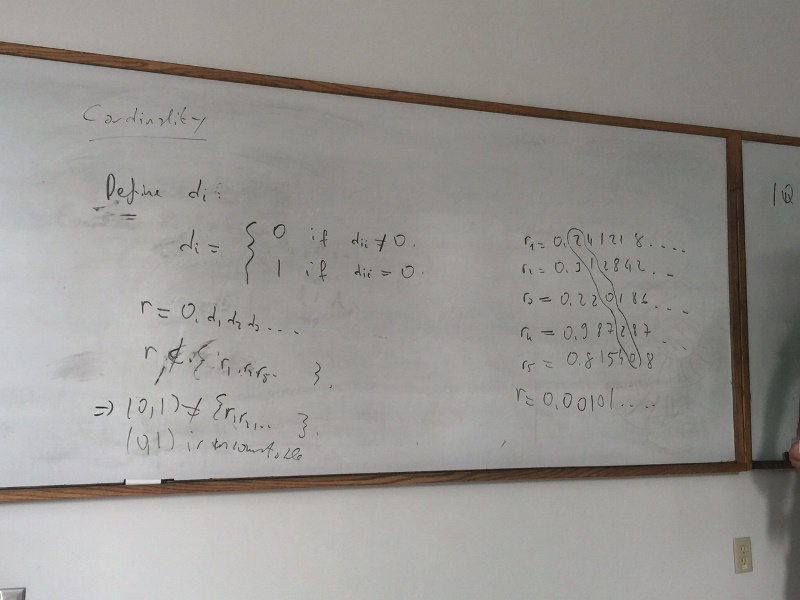 Cardinality
Define di:
di = { 0 if dii ≠ 0.
1 if dii = 0.
r = 0. d1 d2 d3 ...
r ∉ { r1, r2, r3.. }.
⇒ (0,1) ≠ { r1 r2, ... }.
(0,1) is uncountable
r1 = 0.241218....
r2 = 0.312842...
r3 = 0.220186...
r4 = 0.987287...
r5 = 0.815408
r = 0.00101....
|Q